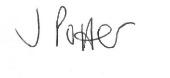 J Potter